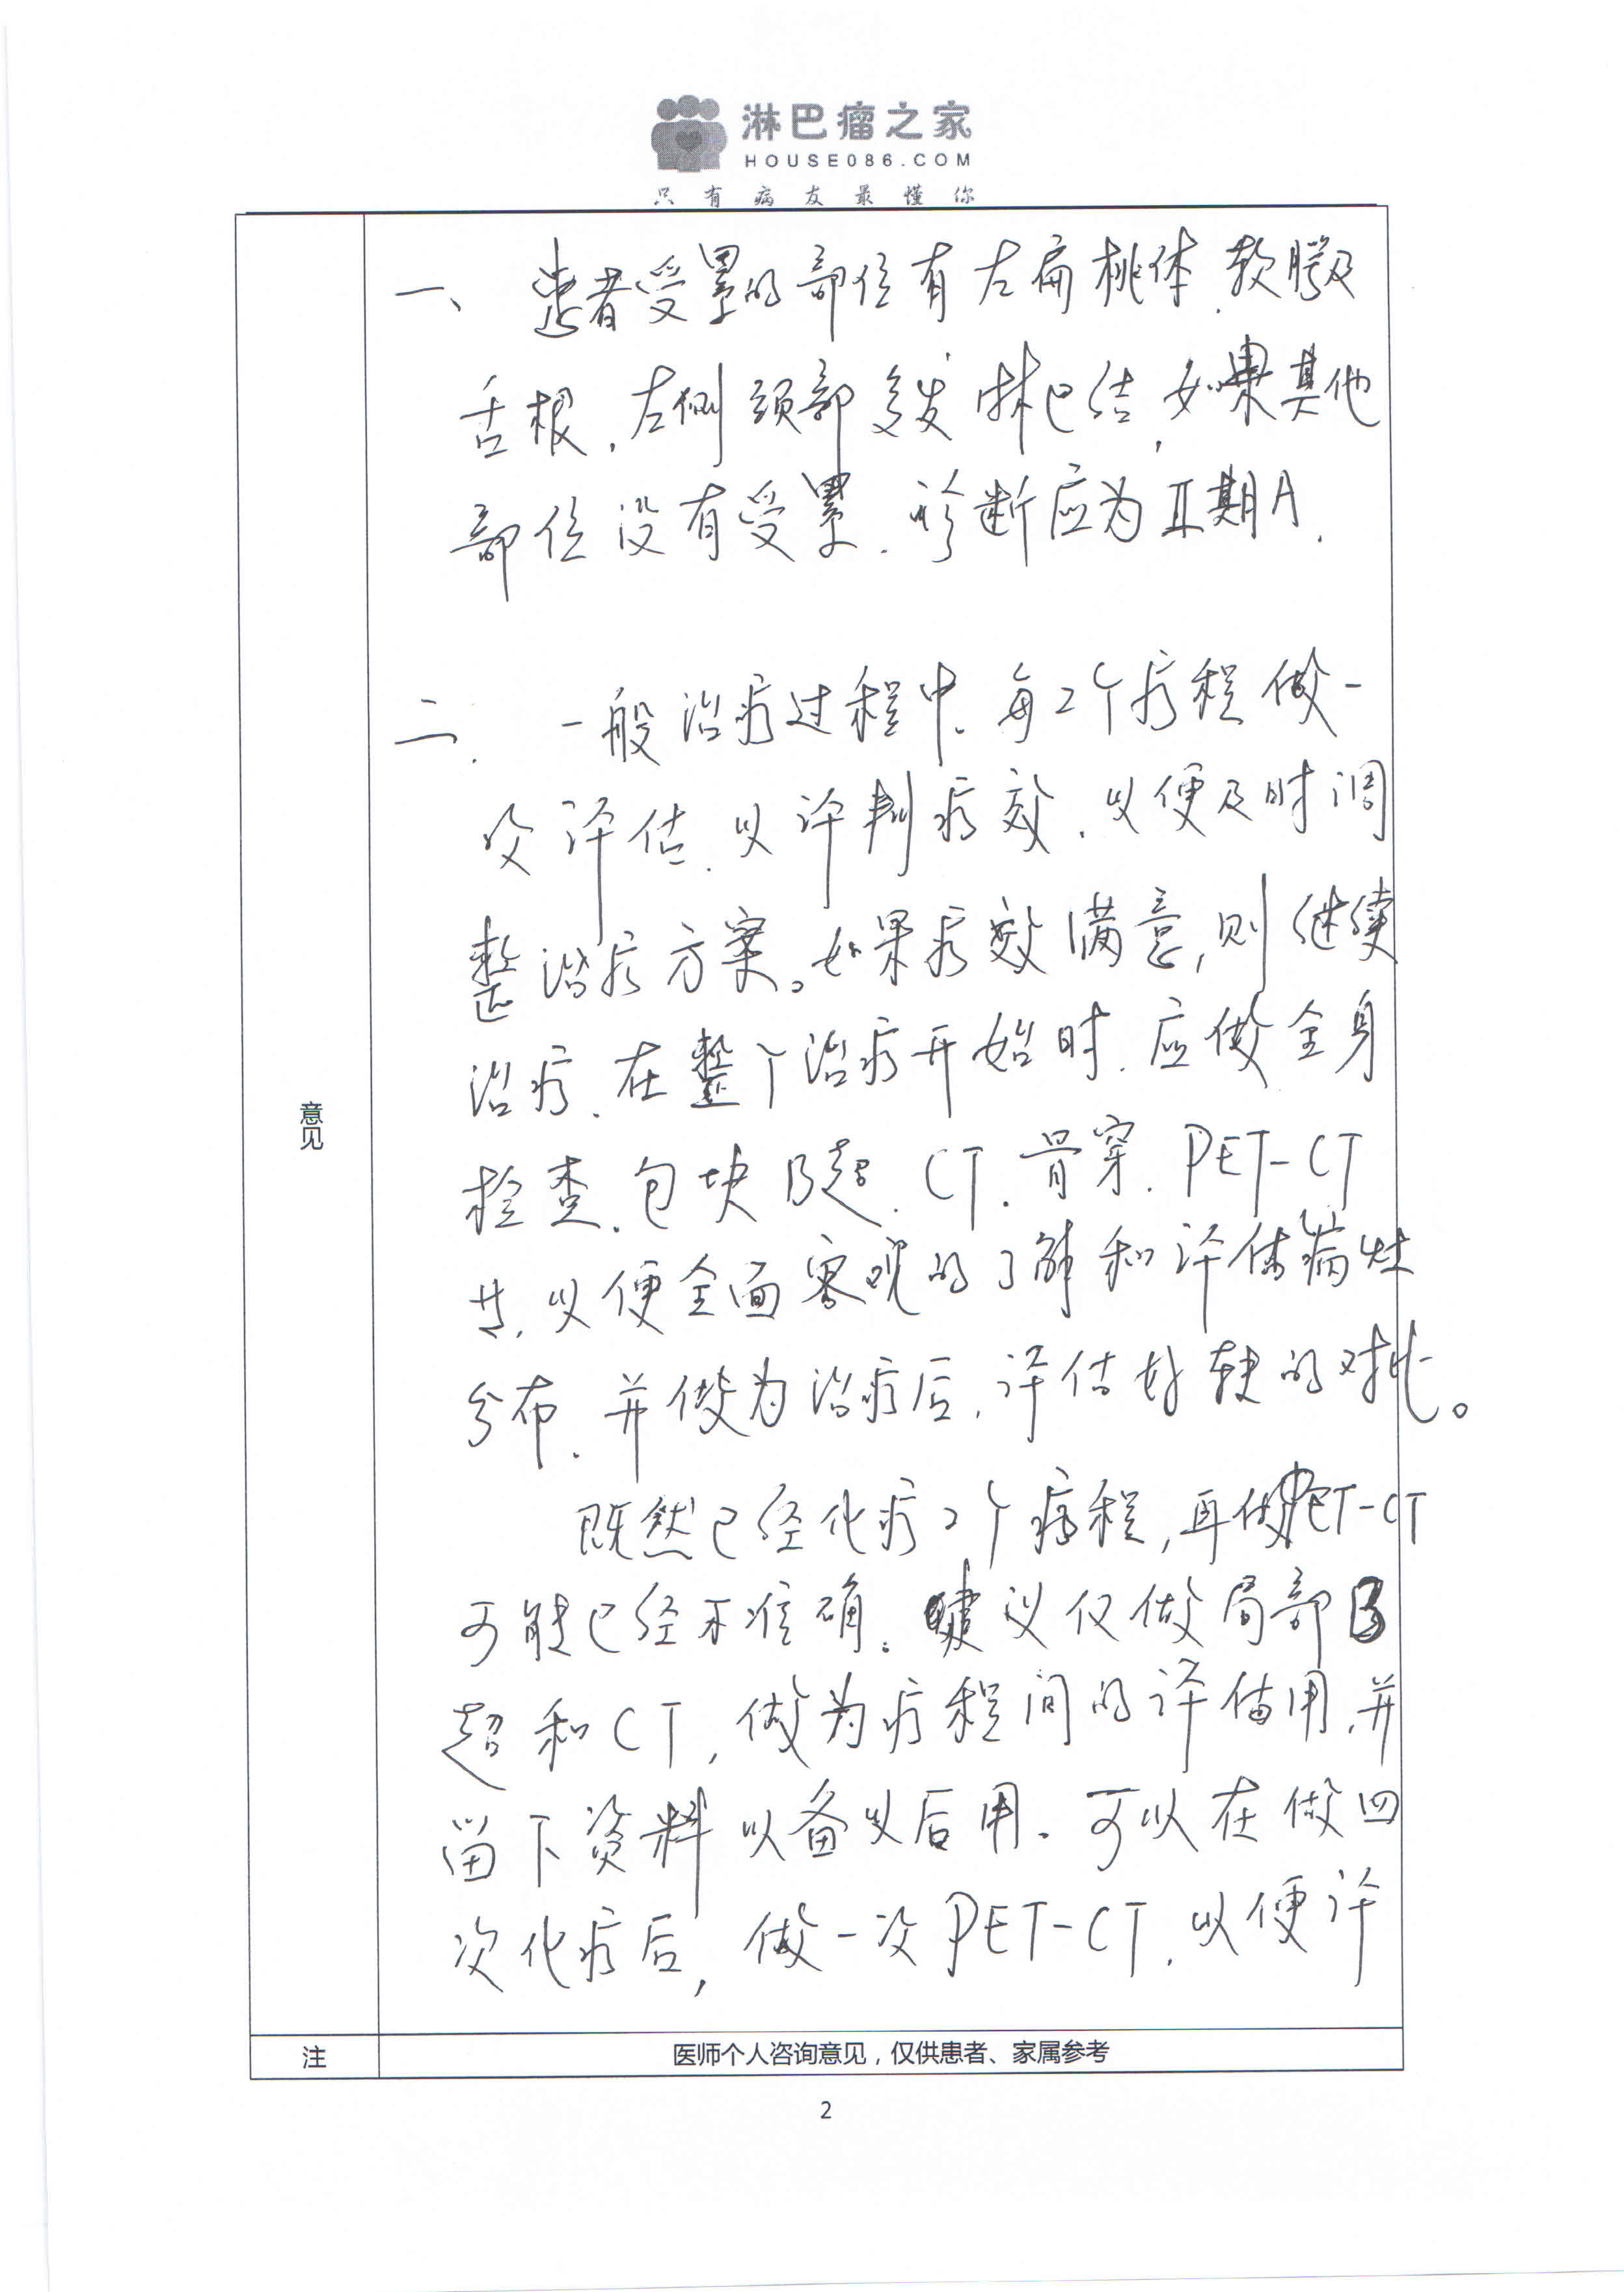 淋巴瘤之家
HOUSE086.COM
只有病友最懂你
一、患者受累的部位有左扁桃体、软腭及
舌根、左侧颈部多发淋巴结,如果其他
部位没有受累,诊断应为Ⅱ期A.
二、一般治疗过程中,每2个疗程做一
次评估,以评判疗效,以便及时调
整治疗方案。如果疗效满意,则继续
治疗.在整个治疗开始时,应做全身
检查,包块B超、CT、骨穿、PET-CT
等,以便全面客观的了解和评估病灶
分布,并做为治疗后,评估好转的对比。
既然已经化疗2个疗程,再做PET-CT
可能已经不准确.建议仅做局部B
超和CT,做为疗程间的评估用,并
留下资料以备以后用.可以在做四
次化疗后,做一次PET-CT,以便评
意见
注
医师个人咨询意见，仅供患者、家属参考
2